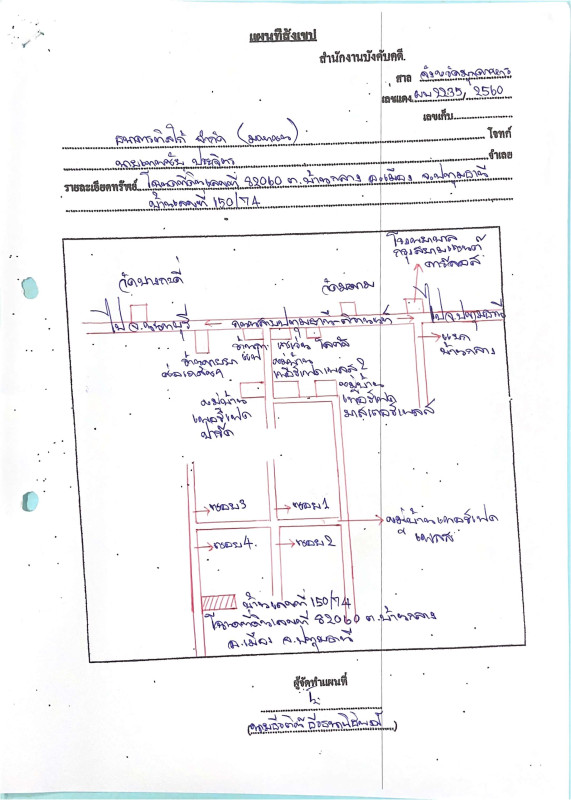 แผนที่สังเขป
สำนักงานบังคับคดี
ศาล จังหวัดมุกดาหาร
เลขแดง ผบ 2235/2560
เลขเก็บ
ธนาคารทิสโก้ จำกัด (มหาชน) โจทก์
จำเลย
รายละเอียดทรัพย์ โฉนดที่ดินเลขที่ 82060 ต.บ้านกลาง อ.เมือง จ.ปทุมธานี
บ้านเลขที่ 150/74
โรงพยาบาล
กรุงสยามเซนต์
คาร์ลอส
วัดบางกะดี่
วัดมะขาม
ไป จ.นนทบุรี
ถนนสายปทุมธานี-ติวานนท์
ไปจ.ปทุมธานี
แยก
บ้านกลาง
โลตัส
หมู่บ้าน
เพอร์เฟคเพลส 2
หมู่บ้าน
เพอร์เฟค
พาร์ค
หมู่บ้าน
เพอร์เฟค
มาสเตอร์เพลส
ซอย 3
ซอย 1
ซอย 4
ซอย 2
หมู่บ้านเพอร์เฟค
เพลส
บ้านเลขที่ 150/74
โฉนดที่ดินเลขที่ 82060 ต.บ้านกลาง
อ.เมือง จ.ปทุมธานี
ผู้จัดทำแผนที่